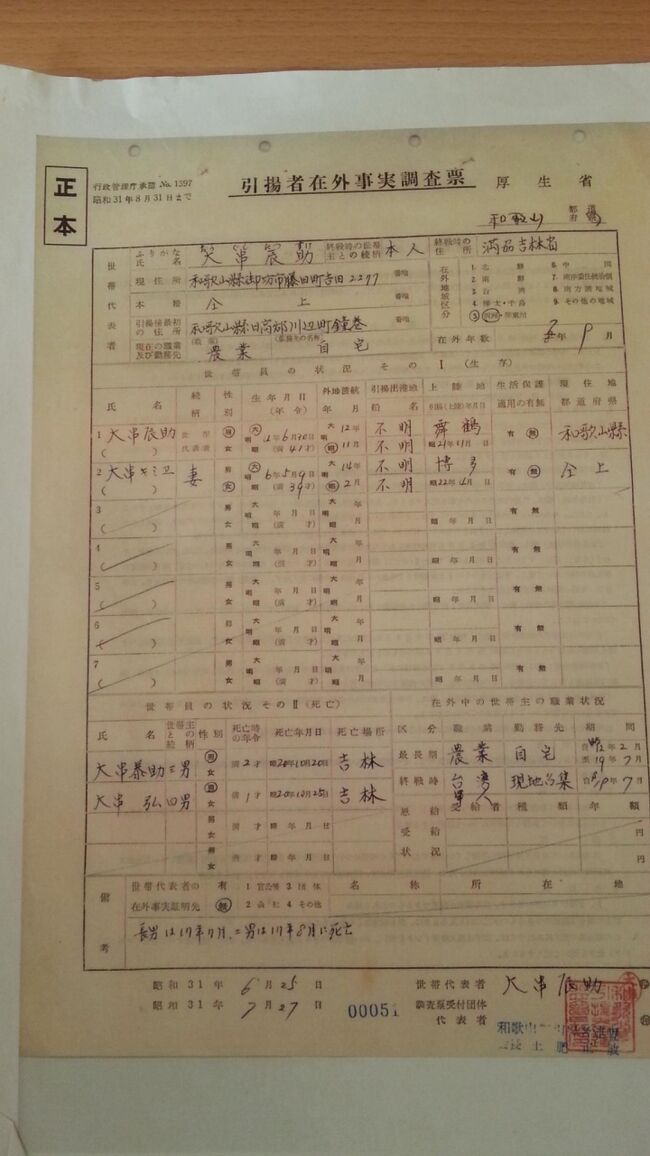 正本
行政管理庁承認 No. 1397
昭和31年8月31日まで
引揚者在外事実調査票 厚生省
和歌山 都道府県
世帯代表者
ふりがな 氏名 大串辰助 終戦時の世帯主との続柄 本人 終戦時の住所 吉林省
現住所 和歌山縣御坊市藤田町吉田2277 番地
本籍 仝上 番地
引揚後最初の住所 和歌山縣日高郡川辺町鐘巻 番地
現在の職業及び勤務先 農業 自宅
在外地域区分
1. 北鮮 6. 中国
2. 南鮮
3. 台湾 8. 南方諸地域
4. 樺太・千島 9. その他の地域
在外年数 年9月
世帯員の状況 その I (生存)
氏名 続柄 性別 生年月日(年令) 外地渡航年月 引揚出港地 船名 上陸地 引揚(上陸)年月日 生活保護適用の有無 現住地都道府県
1 大串辰助 世帯代表者 男女 4年6月30日 (満41才) 12年11月 不明 不明 舞鶴 昭21年11月日 有無 和歌山縣
2 大串 妻 男女 6年5月9日 (満39才) 14年2月 不明 不明 博多 昭22年 月日 有無 仝上
3 ( ) 男女 大昭 年月日 (満 才) 大明昭 年月 昭 年 月 日 有無
4 ( ) 男女 大昭 年月日 (満 才) 大明昭 年月 昭 年 月 日 有無
5 ( ) 男女 大昭 年月日 (満 才) 大明昭 年月 昭 年 月 日 有無
6 ( ) 男女 大昭 年月日 (満 才) 大明昭 年月 昭 年 月 日 有無
7 ( ) 男女 大昭 年月日 (満 才) 大明昭 年月 昭 年 月 日 有無
世帯員の状況 その II (死亡)
氏名 世帯主との続柄 性別 死亡時の年令 死亡年月日 死亡場所
大串泰助 三男 男女 満2才 昭20年10月20日 吉林
大串弘 四男 男女 満1才 昭20年10月25日 吉林
男女 満 才 昭 年 月 日
男女 満 才 昭 年 月 日
在外中の世帯主の職業状況
区分 職業 勤務先 期間
最長期 農業 自宅 自 12年2月 至19年7月
終戦時 現地召集 自 19年7月
恩給受給状況 受給者 種類 年額
円
円
備考
世帯代表者の在外事実証明先 有無 1 官公署 3 団体 2 会社 4 その他 名称 所在地
長男は17年7月、二男は17年8月に死亡
昭和31年6月25日 世帯代表者 大串辰助
昭和31年7月27日 00051 調査票受付団体代表者